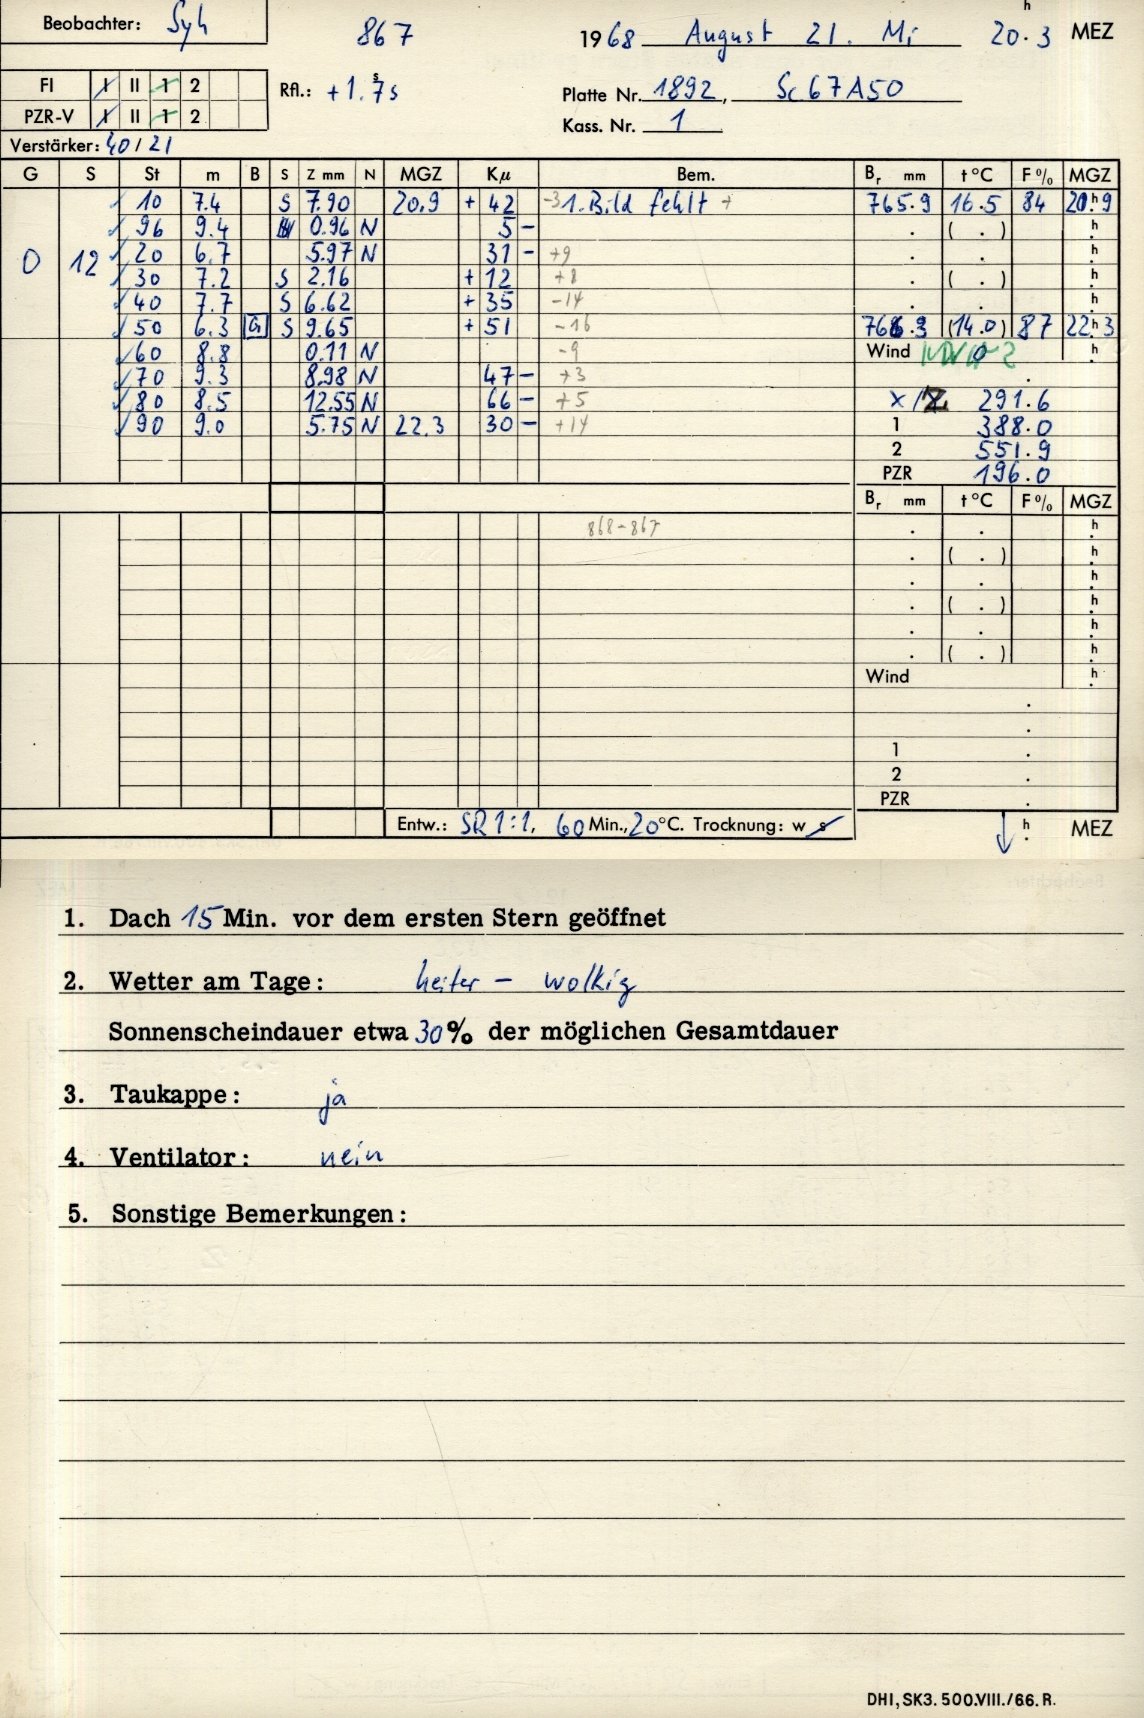 Beobachter: Syh 867 1968 August 21. Mi 20.3 h MEZ
FI I II 1 2 Rfl.: +1.7s Platte Nr. 1892, Sc67A50
PZR-V I II 1 2 Kass. Nr. 1
Verstärker: 40/21
G S St m B S Z mm N MGZ Kμ Bem. Br mm t °C F % MGZ
10 7.4 S 7.90 20.9 + 42 -3 1. Bild fehlt + 765.9 16.5 84 20h9
96 9.4 0.96 N 5 - . ( . ) h
0 12 20 6.7 5.97 N 31 - +9 . . h
30 7.2 S 2.16 + 12 +8 . ( . ) h
40 7.7 S 6.62 + 35 -14 . . h
50 6.3 G S 9.65 + 51 -16 766.3 (14.0) 87 22h3
60 8.8 0.11 N -9 Wind h
70 9.3 8.98 N 47 - +3
80 8.5 12.55 N 66 - +5 291.6
90 9.0 5.75 N 22.3 30 - +14 1 388.0
2 551.9
PZR 196.0
Br mm t °C F % MGZ
868-867 . . h
. ( . ) h
. . h
. ( . ) h
. . h
. ( . ) h
Wind h
.
.
1 .
2 .
PZR .
Entw.: SR 1:1, 60 Min., 20 °C. Trocknung: w s h MEZ
1. Dach 15 Min. vor dem ersten Stern geöffnet
2. Wetter am Tage: heiter - wolkig
Sonnenscheindauer etwa 30% der möglichen Gesamtdauer
3. Taukappe: ja
4. Ventilator: nein
5. Sonstige Bemerkungen:
DHI, SK3. 500.VIII./66. R.